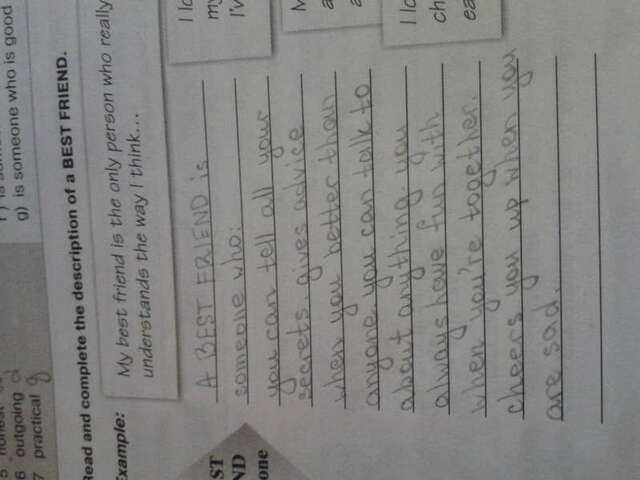 g) is someone who is good
5 honest
6 outgoing
7 practical g
Read and complete the description of a BEST FRIEND.
Example:
My best friend is the only person who really
understands the way I think...
I lo
my
I'v
M
a
a
I lo
ch
ea
ST
ND
one
A BEST FRIEND is
someone who:
you can tell all your
secrets, gives advice
when you better than
anyone, you can talk to
about anything, you
always have fun with
when you're together.
cheers you up when you
are sad.